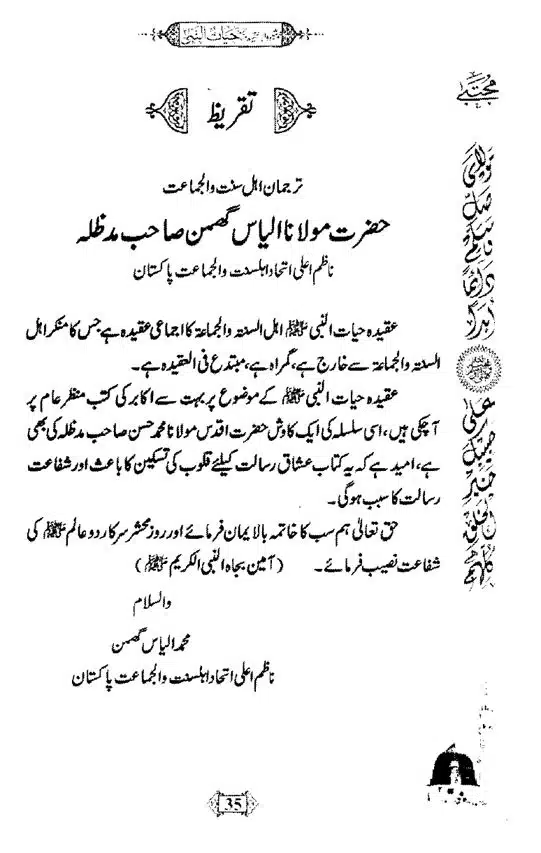 حیات النبی
تقریظ
ترجمان اہل سنت والجماعت
حضرت مولانا الیاس گھمن صاحب مدظلہ
ناظم اعلی اتحاد اہلسنت والجماعت پاکستان
عقیدہ حیات النبی ﷺ اہل السنۃ والجماعۃ کا اجماعی عقیدہ ہے جس کا منکر اہل
السنۃ والجماعۃ سے خارج ہے، گمراہ ہے، مبتدع فی العقیدہ ہے۔
عقیدہ حیات النبی ﷺ کے موضوع پر بہت سے اکابر کی کتب منظر عام پر
آچکی ہیں، اسی سلسلہ کی ایک کاوش حضرت اقدس مولانا محمد حسن صاحب مدظلہ کی بھی
ہے، امید ہے کہ یہ کتاب عشاق رسالت کیلئے قلوب کی تسکین کا باعث اور شفاعت
رسالت کا سبب ہوگی۔
حق تعالیٰ ہم سب کا خاتمہ بالایمان فرمائے اور روز محشر سرکار دو عالم ﷺ کی
شفاعت نصیب فرمائے۔ (آمین بجاہ النبی الکریم ﷺ)
والسلام
محمد الیاس گھمن
ناظم اعلی اتحاد اہلسنت والجماعت پاکستان
مولای
صل
وسلم
دائما
ابدا
علی
حبیبک
خیر
الخلق
کلہم
35